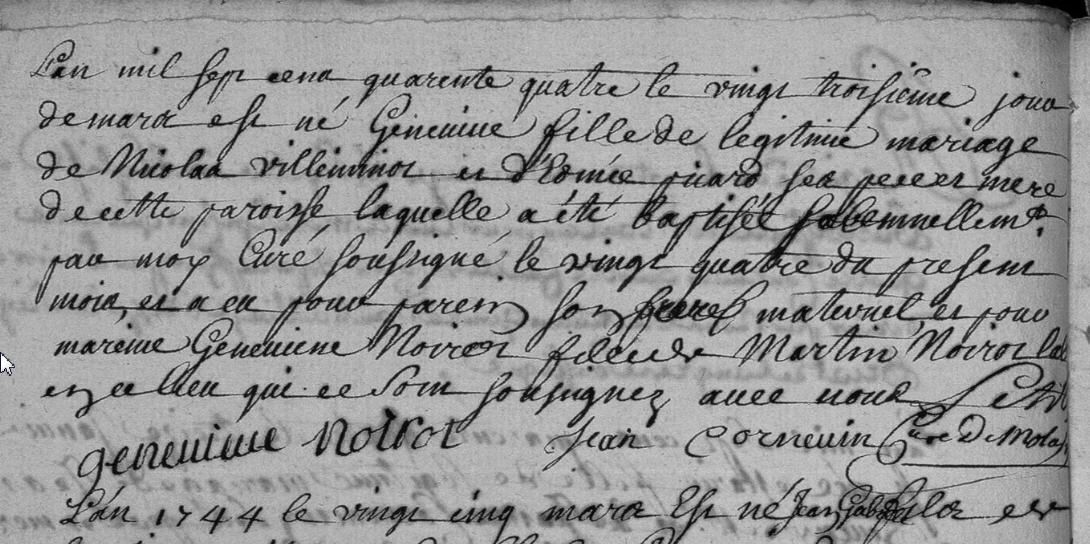 L'an mil sept cent quarente quatre le vingt troisieme jour
de mars est né Genevieve fille de legitime mariage
de Nicolas villeminot et d'Edmée picard ses pere et mere
de cette paroisse laquelle a été baptisée solemnellemt.
par moy Curé soussigné le vingt quatre du present
mois, et a eu pour parein son frere maternel, et pour
mareine Genevieve Noirot fille de Martin Noirot
en ce lieu qui se sont soussignez avec nous
genevieve Noirot Jean Cornevin Curé de
L'an 1744 le vingt cinq mars Est né Jean